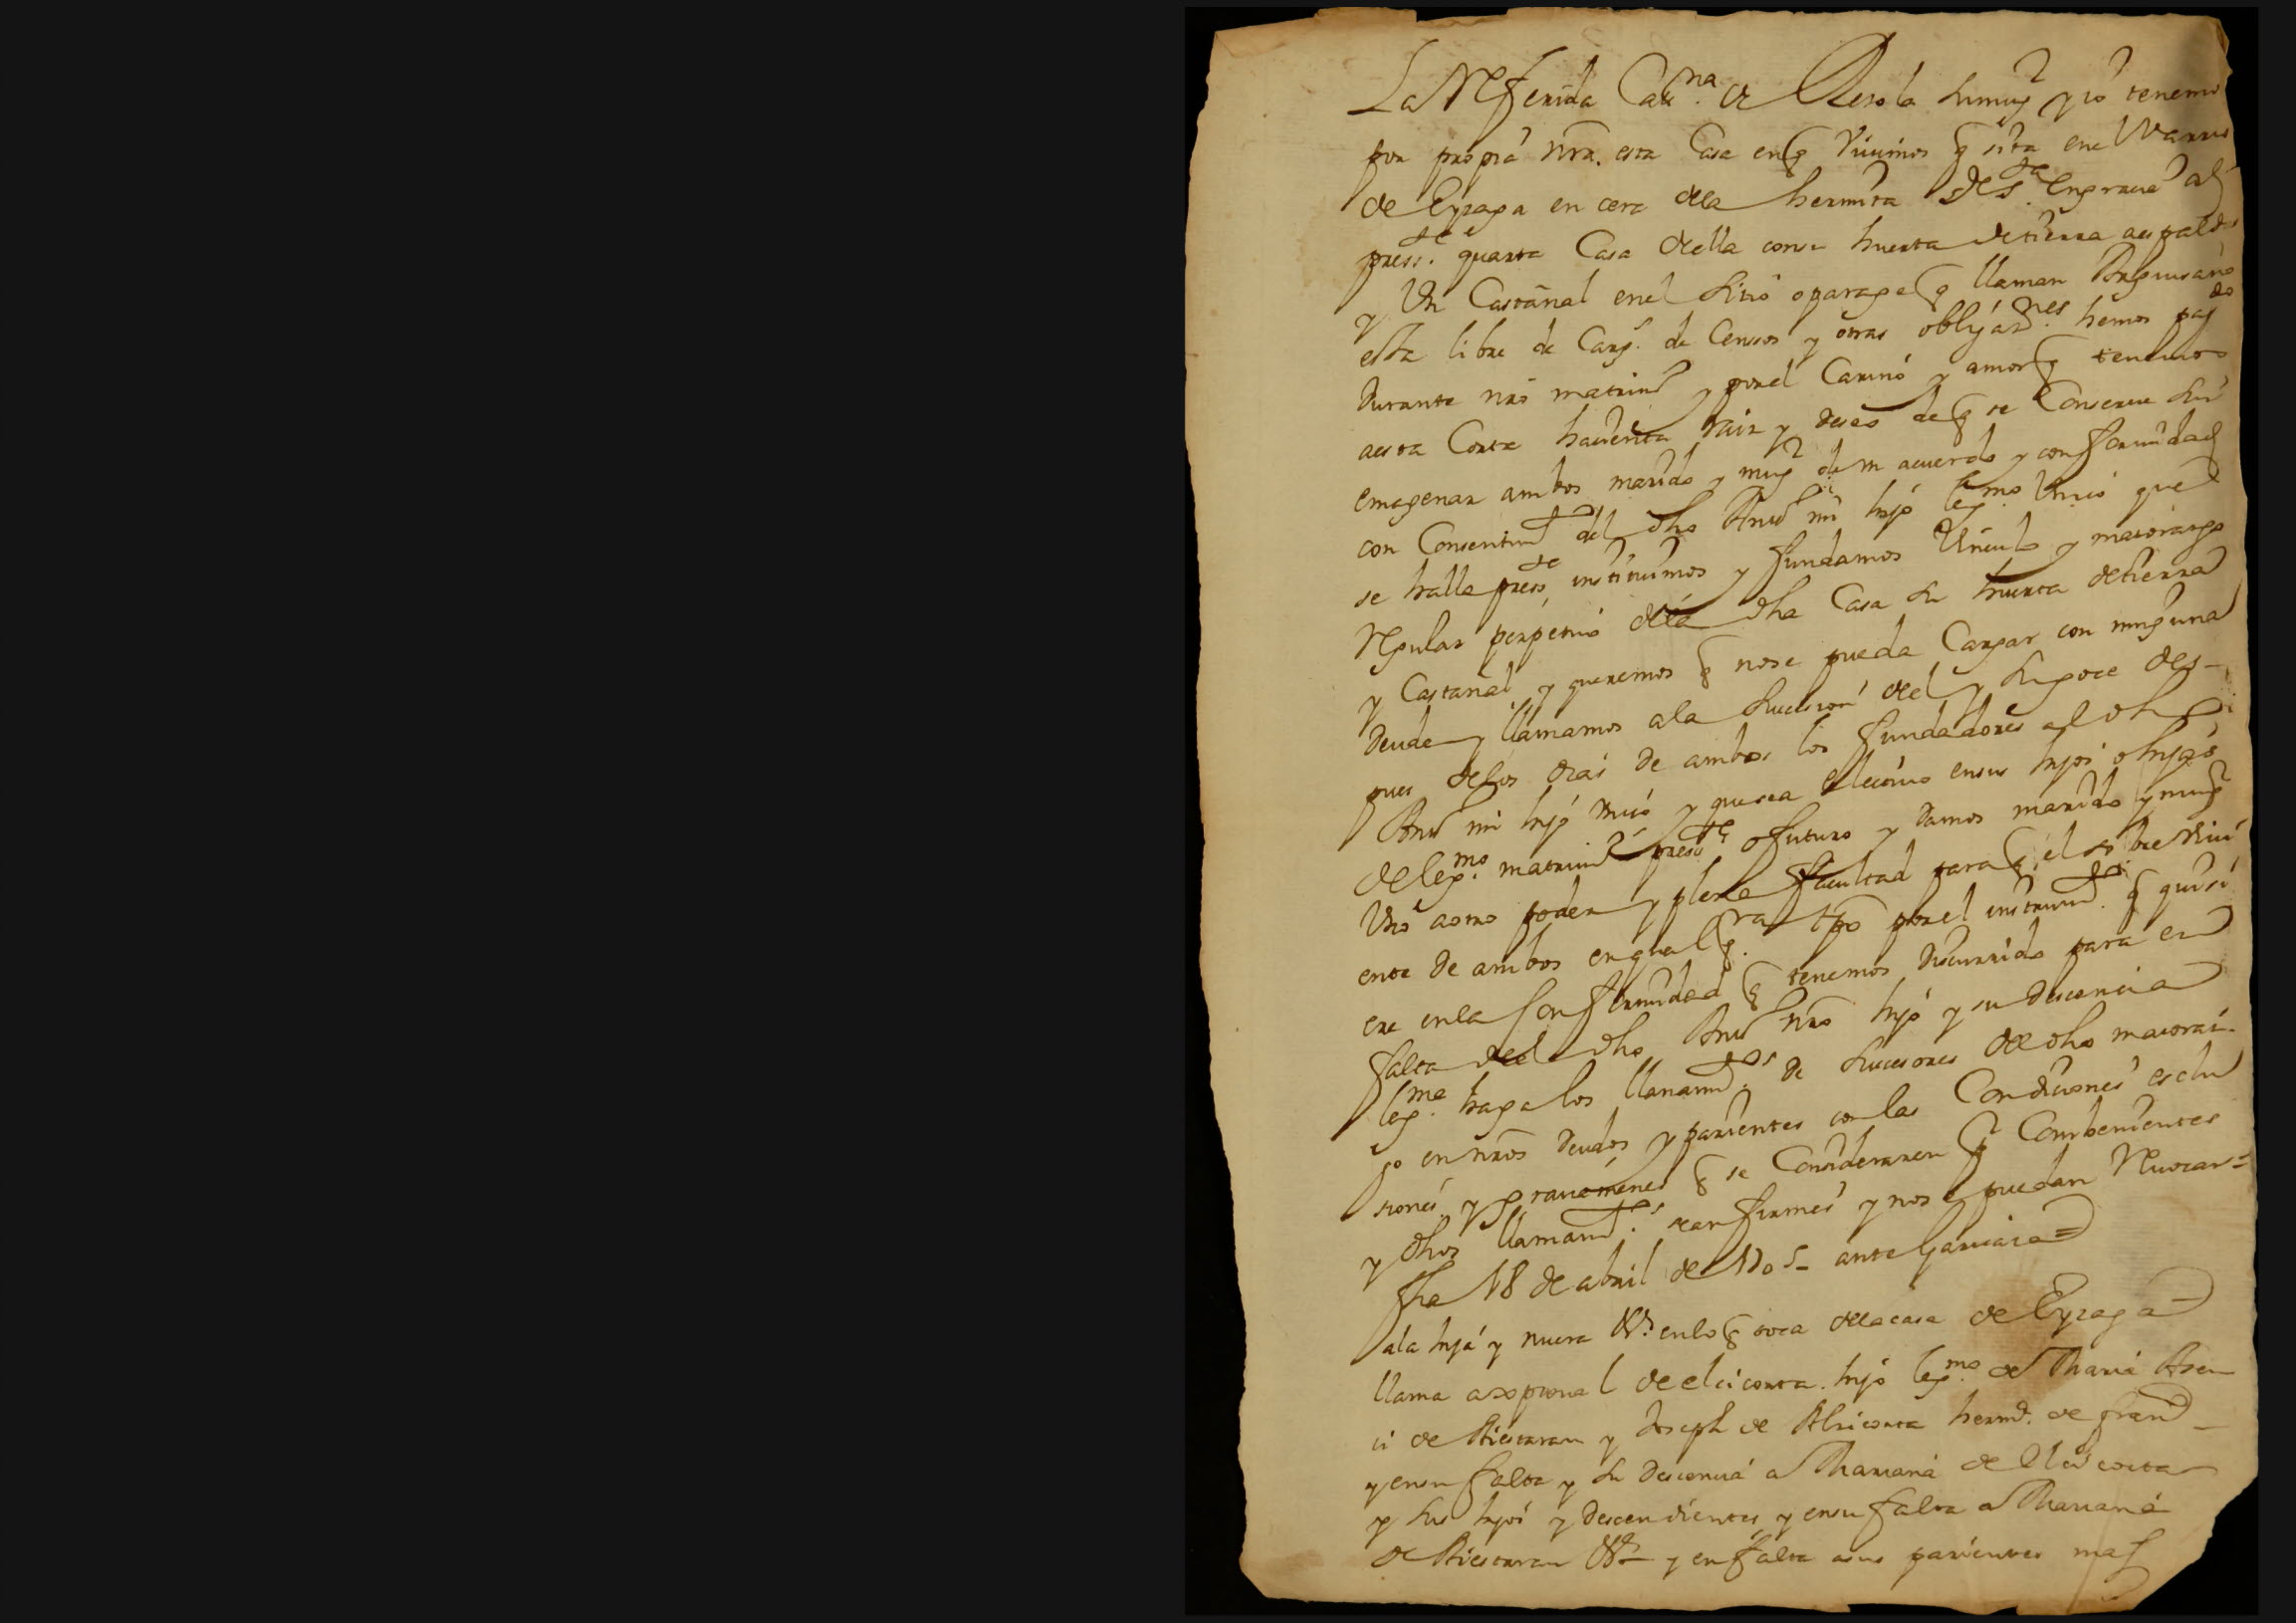 La Referida Cat.na de Olesola su mug.r y io tenemos
por propia nrã. esta Casa en q̃ Vivimos q̃ sita en el Varrio
de Eyzaga en cera dela hermita de S.ta Engracia al
press.te quarta Casa della con su huerta detierra aespaldas
y Un Castañal enel Sitio oparage q̃ llaman
esta libre de Carg.s de Censos y otras obligaz.nes hemos pag.do
Durante nr̃o matrim.o y porel Cariño y amor q̃ tenemos
aesta Corta hacienda raiz y deseo de q̃ se Conserve Sin
emagenar ambos marido y mug.r de un acuerdo y conformidad
con Consentim.to del dho Ant.o mi hijo leg.mo Unico que
se halla press.te instituimos y fundamos Vinculo y maiorazgo
Regular perpetuo dela dha Casa Su huerta detierra
y Castañal y queremos q̃ nose pueda Cargar con ninguna
Deuda y llamamos ala Sucesion del y Su goce des-
pues delos dias de ambos los fundadores al dho
Ant.o mi hijo Unico y que sea electivo ensus hijos o hijas
de leg.mo matrim.o press.te o futuro y Damos marido y mug.r
Uno aotro poder y plena facultad para q̃ el sobreVivi
ente de ambos enqual q.ra tpõ porel instrum.to q̃ quisi
ere enla Conformidad q̃ tenemos Discurrido para en
falta del dho Ant.o nr̃o hijo y su descencia
leg.ma haga los llamam.tos de Sucesores de dho maioraz-
go en nr̃os Deudos y parientes con las Condiciones esclu
siones y gravamenes q̃ se Consideraren p.r Combenientes
y dhos llamam.tos sean firmes y nos e puedan Revocar=
fha 18 de abril de 1705- ante Garciaza=
ala hija y nuera Vd. enlo q̃ toca dela casa de Eyzaga
llama a de eliconta. hijo leg.mo de Maria Asen
ci de Aiestaran y Joseph de Aliconta herm.o de fran.co -
y ensu falta y Su Descencia a Mariana de
y Sus hijos y Descendientes y ensu falta a Mariana
de Aiestaran Vd.a y en falta asus parientes mas